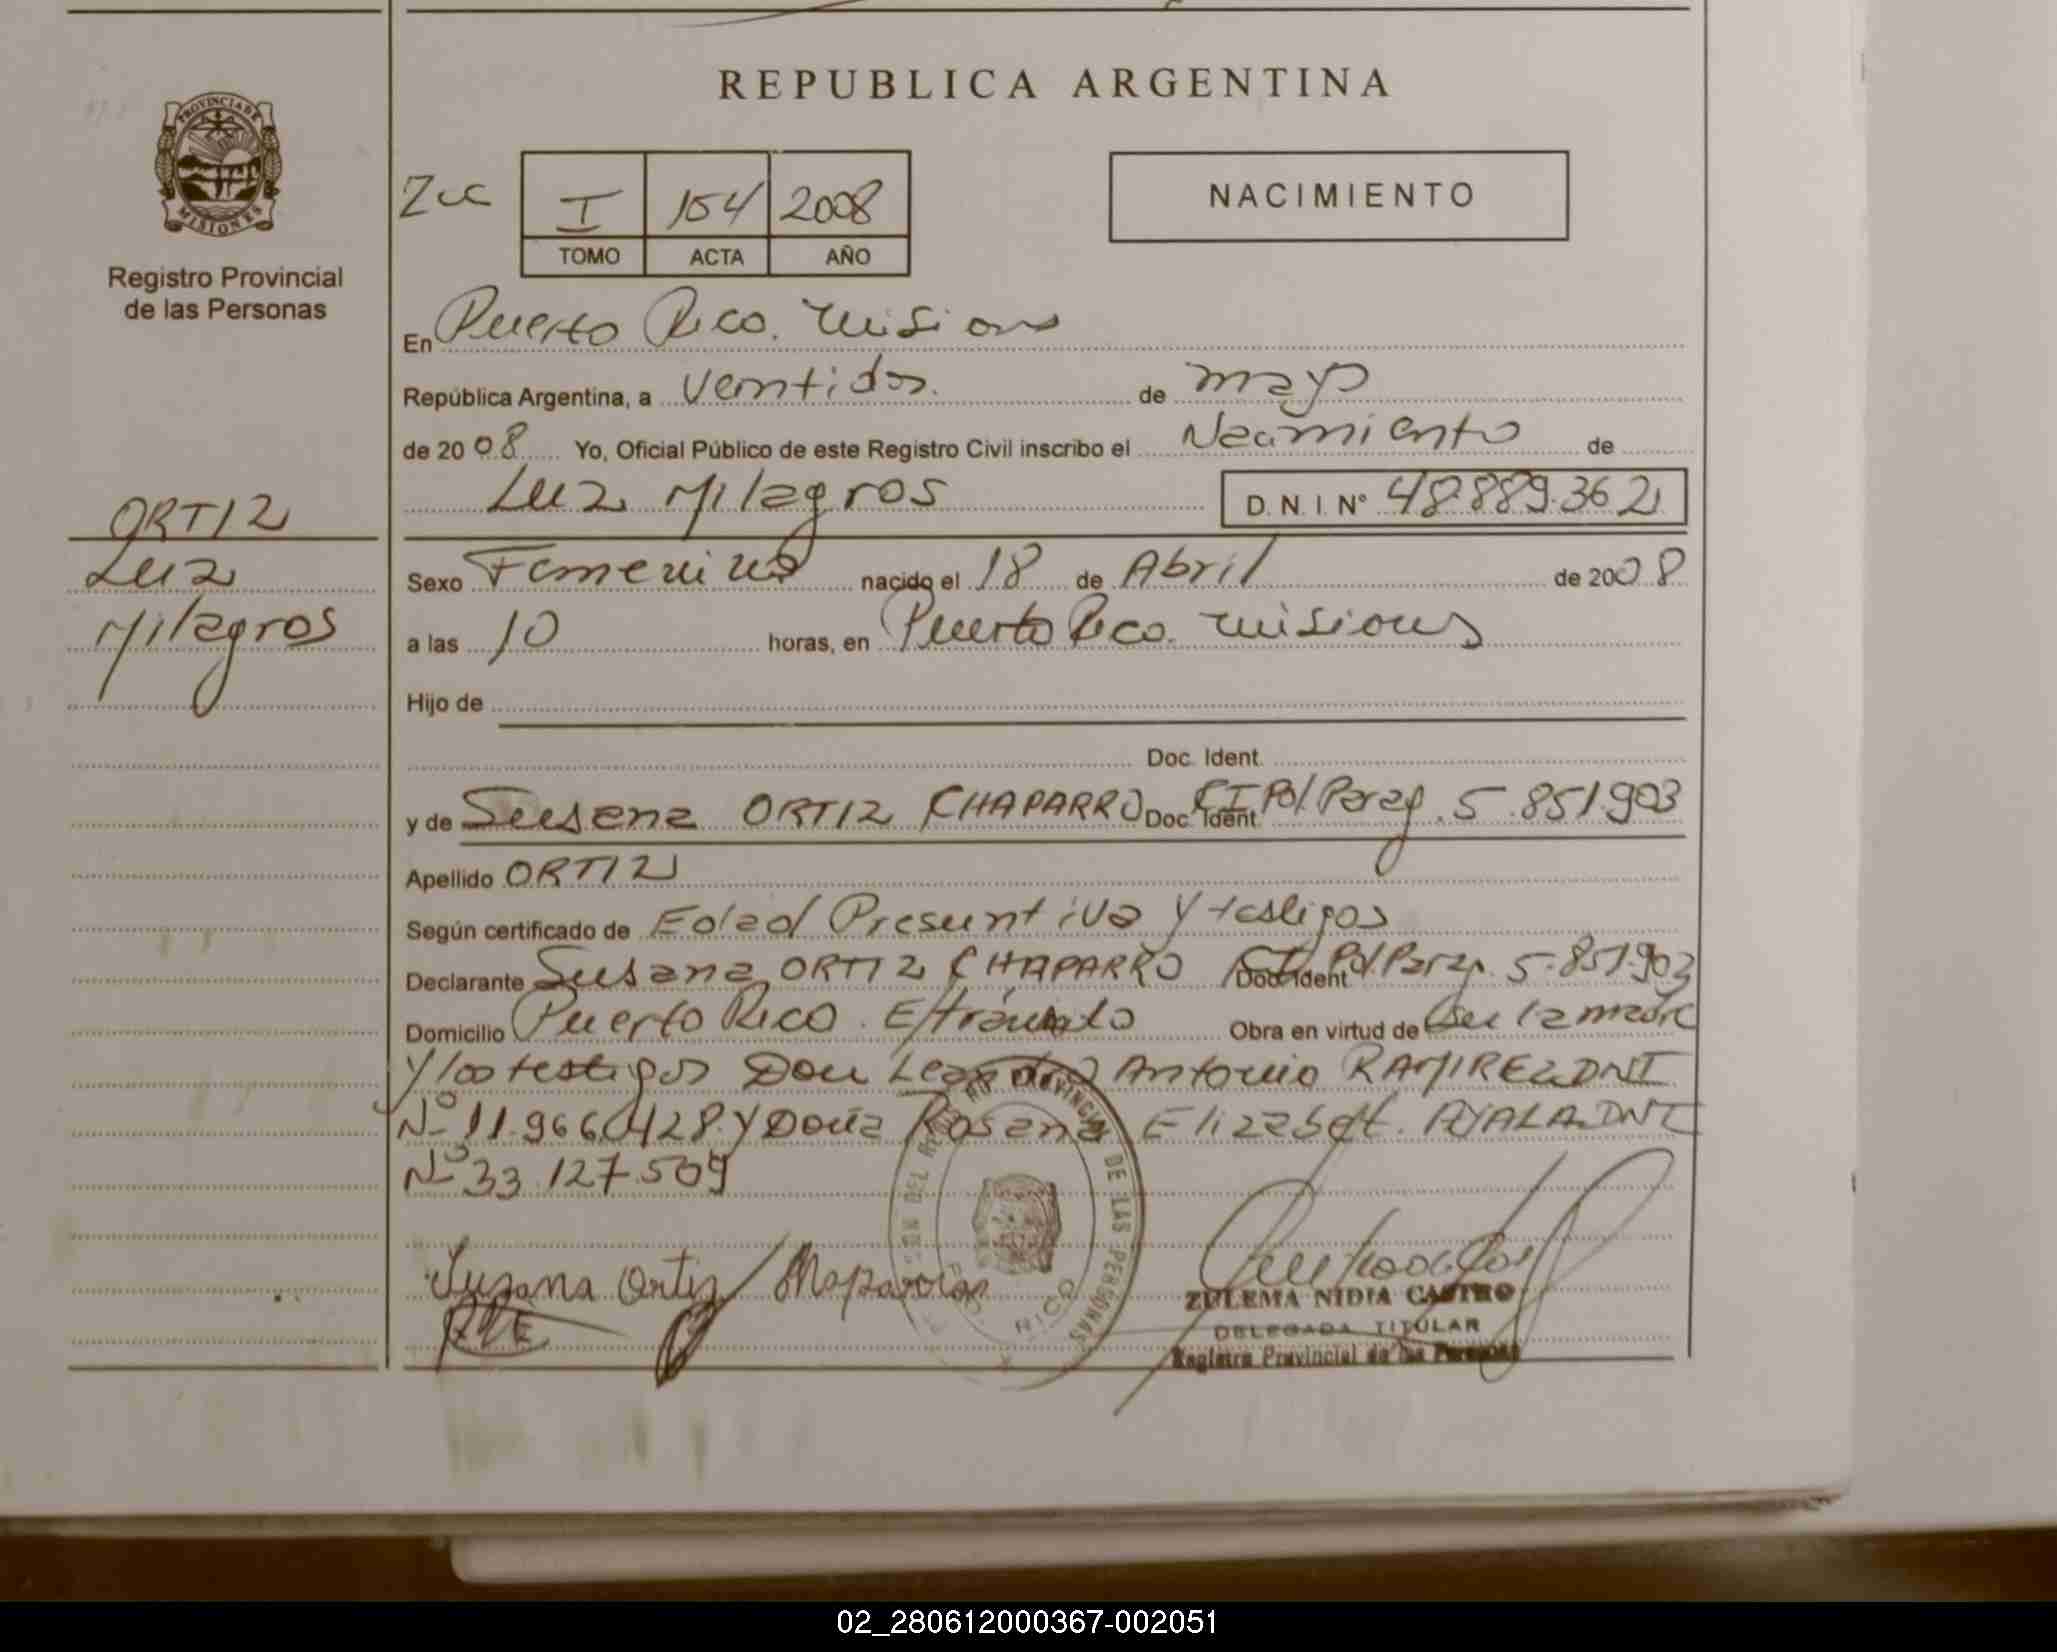 REPUBLICA ARGENTINA
PROVINCIA DE
MISIONES
Registro Provincial
de las Personas
I 154 2008
TOMO ACTA AÑO
NACIMIENTO
En Puerto Rico. Misiones
República Argentina, a Veintidos. de mayo
de 2008 Yo, Oficial Público de este Registro Civil inscribo el Nacimiento de
Luz Milagros D. N. I. N° 48.889.362
ORTIZ
Luz
Milagros
Sexo Femenino nacido el 18 de Abril de 2008
a las 10 horas, en Puerto Rico. Misiones
Hijo de
Doc. Ident.
y de Susana ORTIZ CHAPARRO Doc. Ident. CI Pol. Parag. 5.851.903
Apellido ORTIZ
Según certificado de Edad Presuntiva y testigos
Declarante Susana ORTIZ CHAPARRO Doc. Ident CI Pol. Parag. 5.851.903
Domicilio Puerto Rico. Obra en virtud de Ser la madre
y los testigos Don Antonio RAMIREZ DNI
Nº 11.966.428 y Doña Rosana Elizabet. AYALA DNI
Nº 33.127.509
Suzana Ortiz
PROVINCIAL DE LAS PERSONAS
RICO
ZULEMA NIDIA CASTRO
DELEGADA TITULAR
Registro Provincial de las Personas
02_280612000367-002051